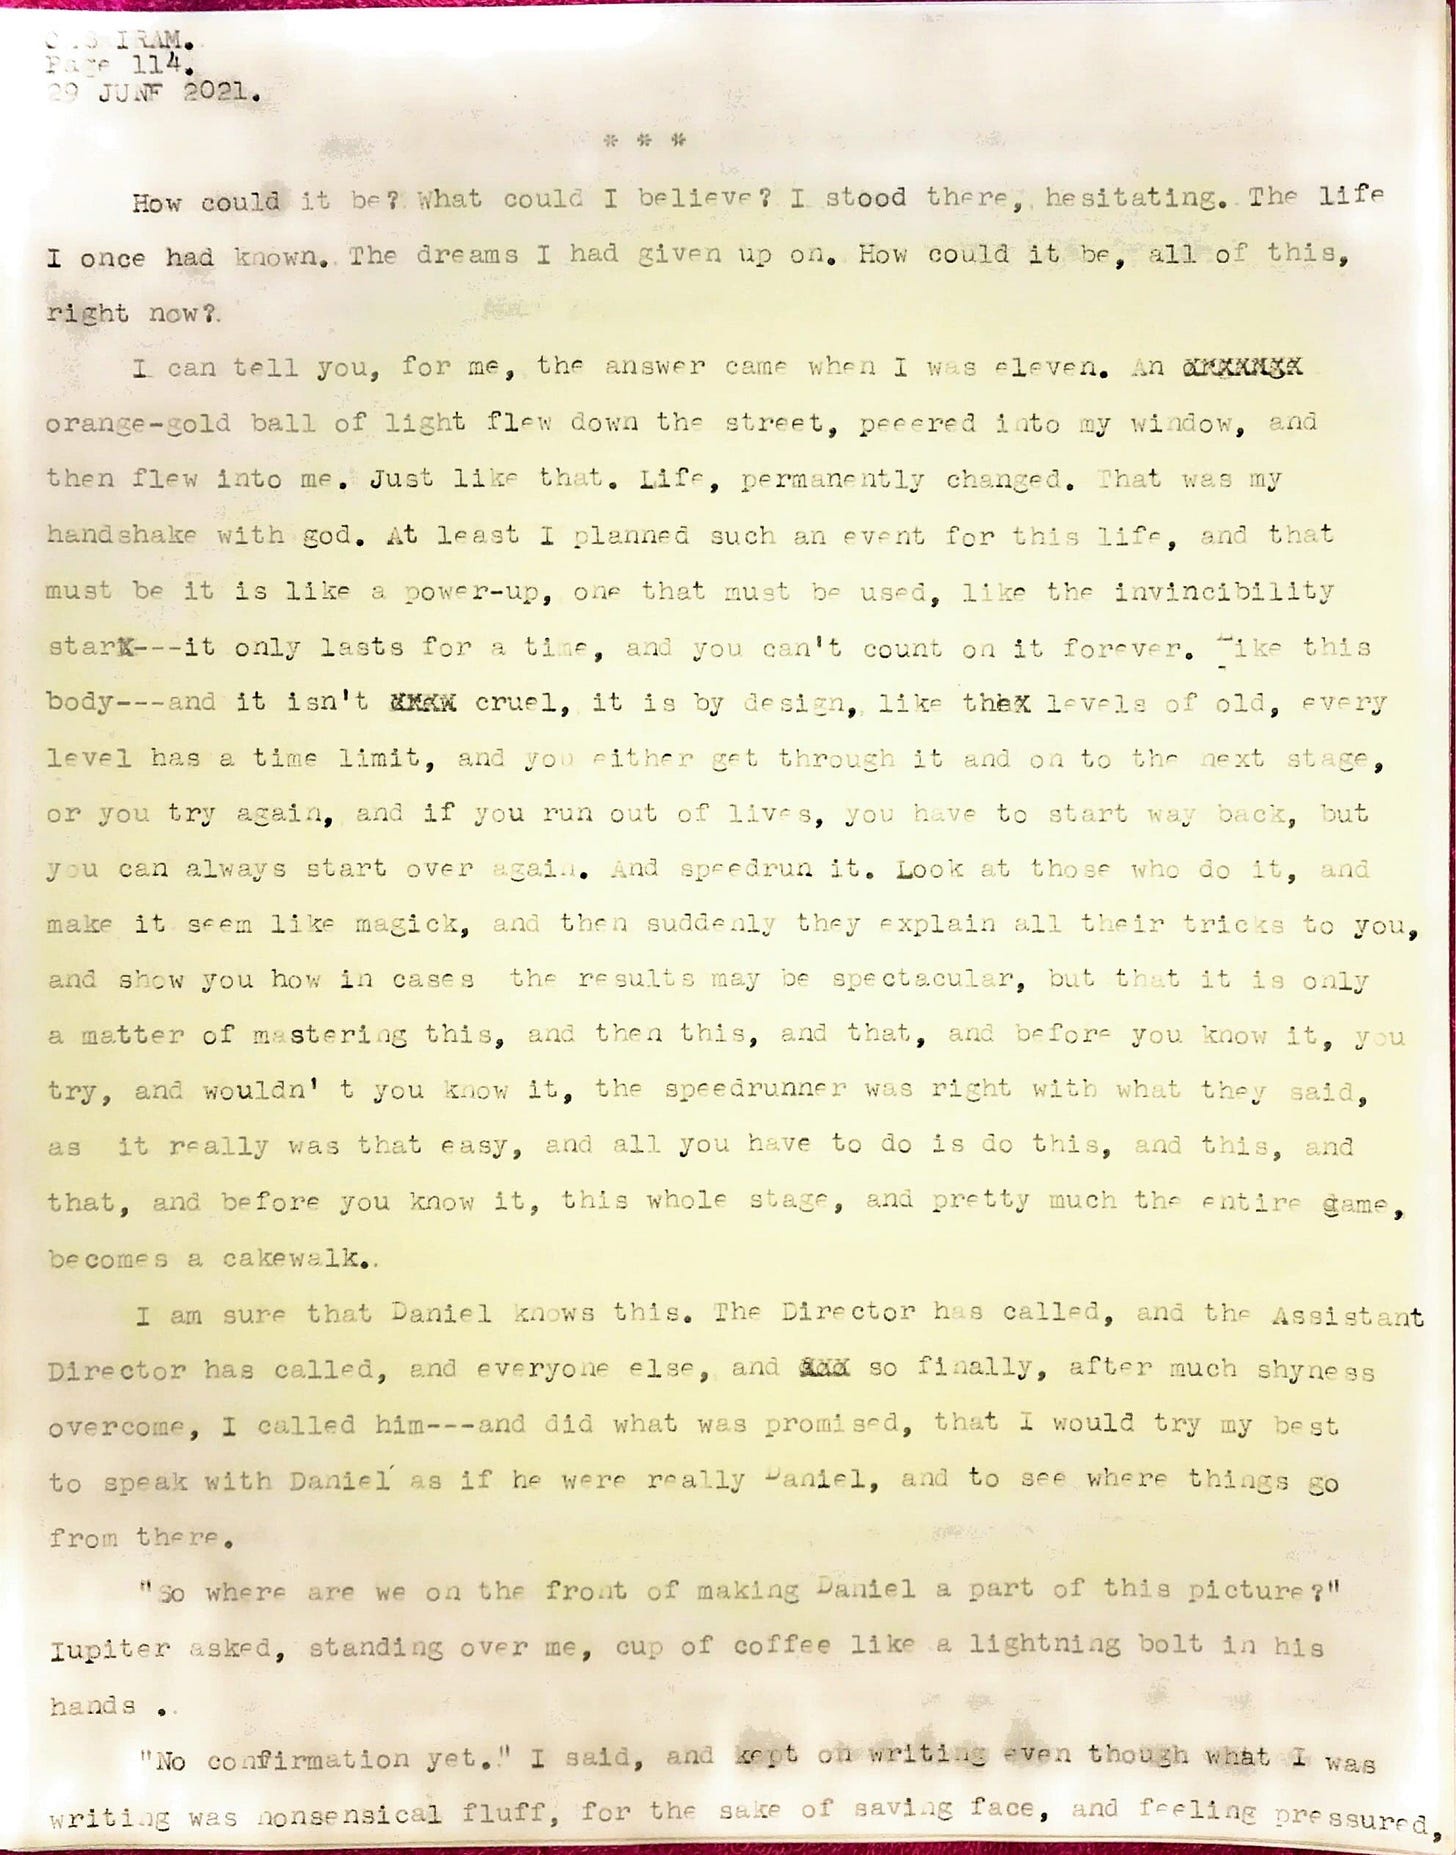 IRAM.
Page 114.
29 JUNE 2021.
* * *
How could it be? What could I believe? I stood there, hesitating. The life
I once had known. The dreams I had given up on. How could it be, all of this,
right now?
I can tell you, for me, the answer came when I was eleven. An
orange-gold ball of light flew down the street, peeered into my window, and
then flew into me. Just like that. Life, permanently changed. That was my
handshake with god. At least I planned such an event for this life, and that
must be it is like a power-up, one that must be used, like the invincibility
star---it only lasts for a time, and you can't count on it forever. Like this
body---and it isn't cruel, it is by design, like the levels of old, every
level has a time limit, and you either get through it and on to the next stage,
or you try again, and if you run out of lives, you have to start way back, but
you can always start over again. And speedrun it. Look at those who do it, and
make it seem like magick, and then suddenly they explain all their tricks to you,
and show you how in cases the results may be spectacular, but that it is only
a matter of mastering this, and then this, and that, and before you know it, you
try, and wouldn' t you know it, the speedrunner was right with what they said,
as it really was that easy, and all you have to do is do this, and this, and
that, and before you know it, this whole stage, and pretty much the entire game,
becomes a cakewalk..
I am sure that Daniel knows this. The Director has called, and the Assistant
Director has called, and everyone else, and so finally, after much shyness
overcome, I called him---and did what was promised, that I would try my best
to speak with Daniel as if he were really Daniel, and to see where things go
from there.
"So where are we on the front of making Daniel a part of this picture?"
Iupiter asked, standing over me, cup of coffee like a lightning bolt in his
hands .
"No confirmation yet." I said, and kept on writing even though what I was
writing was nonsensical fluff, for the sake of saving face, and feeling pressured,